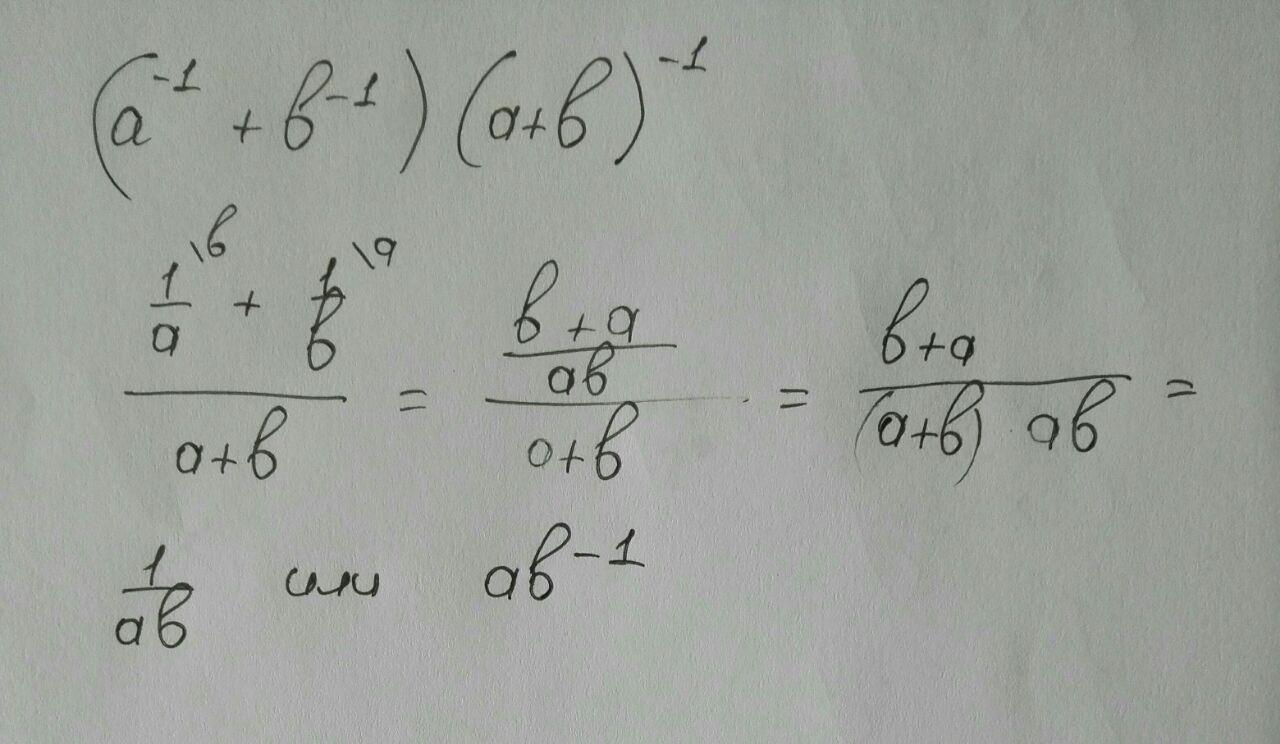 (a⁻¹ + b⁻¹) (a+b)⁻¹
(1/a \b + 1/b \a)/(a+b) = ((b+a)/(ab))/(a+b) = (b+a)/((a+b) ab) =
1/(ab) или ab⁻¹